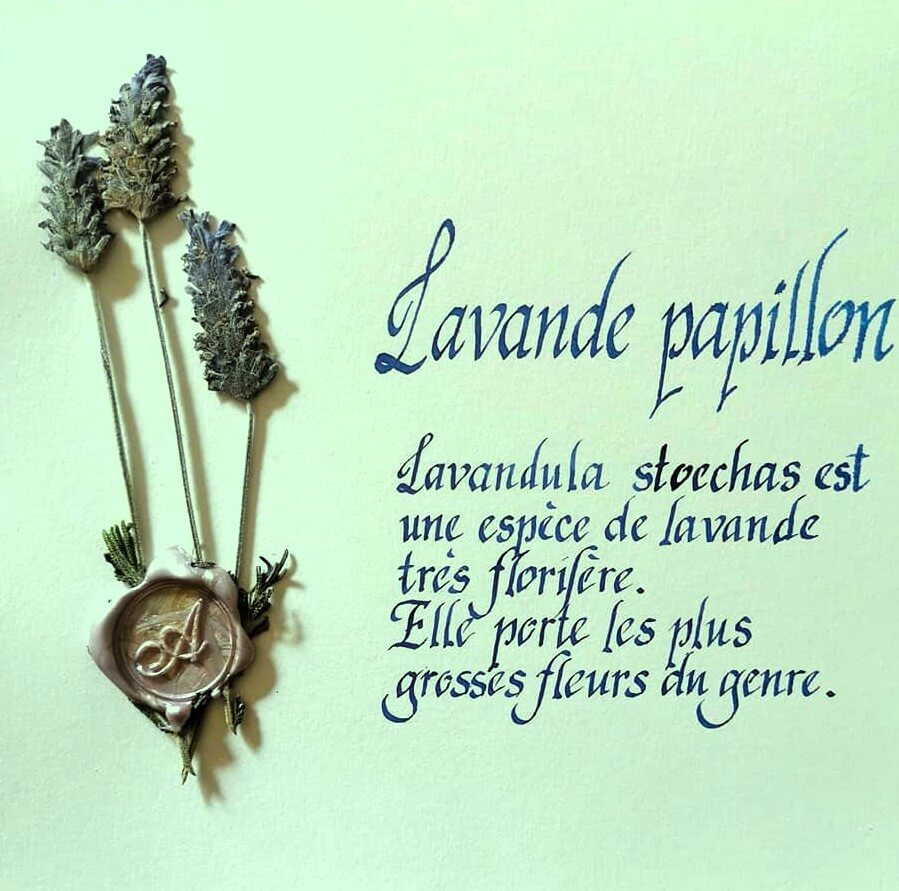 Lavande papillon
Lavandula stoechas est
une espèce de lavande
très florifère.
Elle porte les plus
grosses fleurs du genre.
A